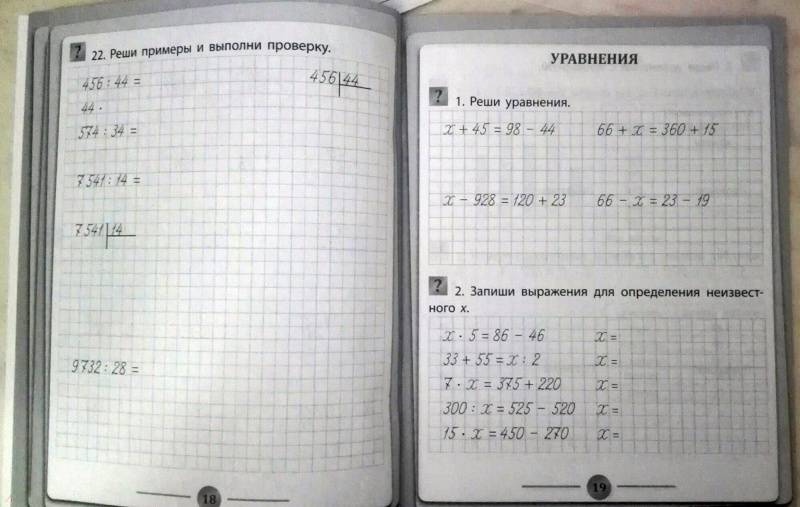 ? 22. Реши примеры и выполни проверку.
456 : 44 =
456 44
44 ·
574 : 34 =
7541 : 14 =
7541 14
9732 : 28 =
18
УРАВНЕНИЯ
? 1. Реши уравнения.
x + 45 = 98 − 44 66 + x = 360 + 15
x − 928 = 120 + 23 66 − x = 23 − 19
? 2. Запиши выражения для определения неизвест-
ного x.
x · 5 = 86 − 46 x =
33 + 55 = x : 2 x =
7 · x = 375 + 220 x =
300 : x = 525 − 520 x =
15 · x = 450 − 270 x =
19